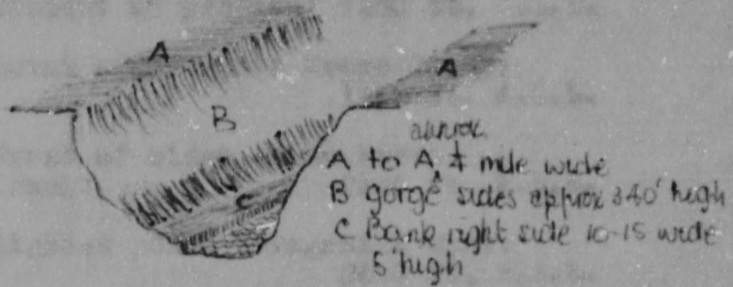 A
A
B
C
approx
A to A, ¼ mile wide
B gorge sides approx 340' high
C Bank right side 10-15 wide
5' high